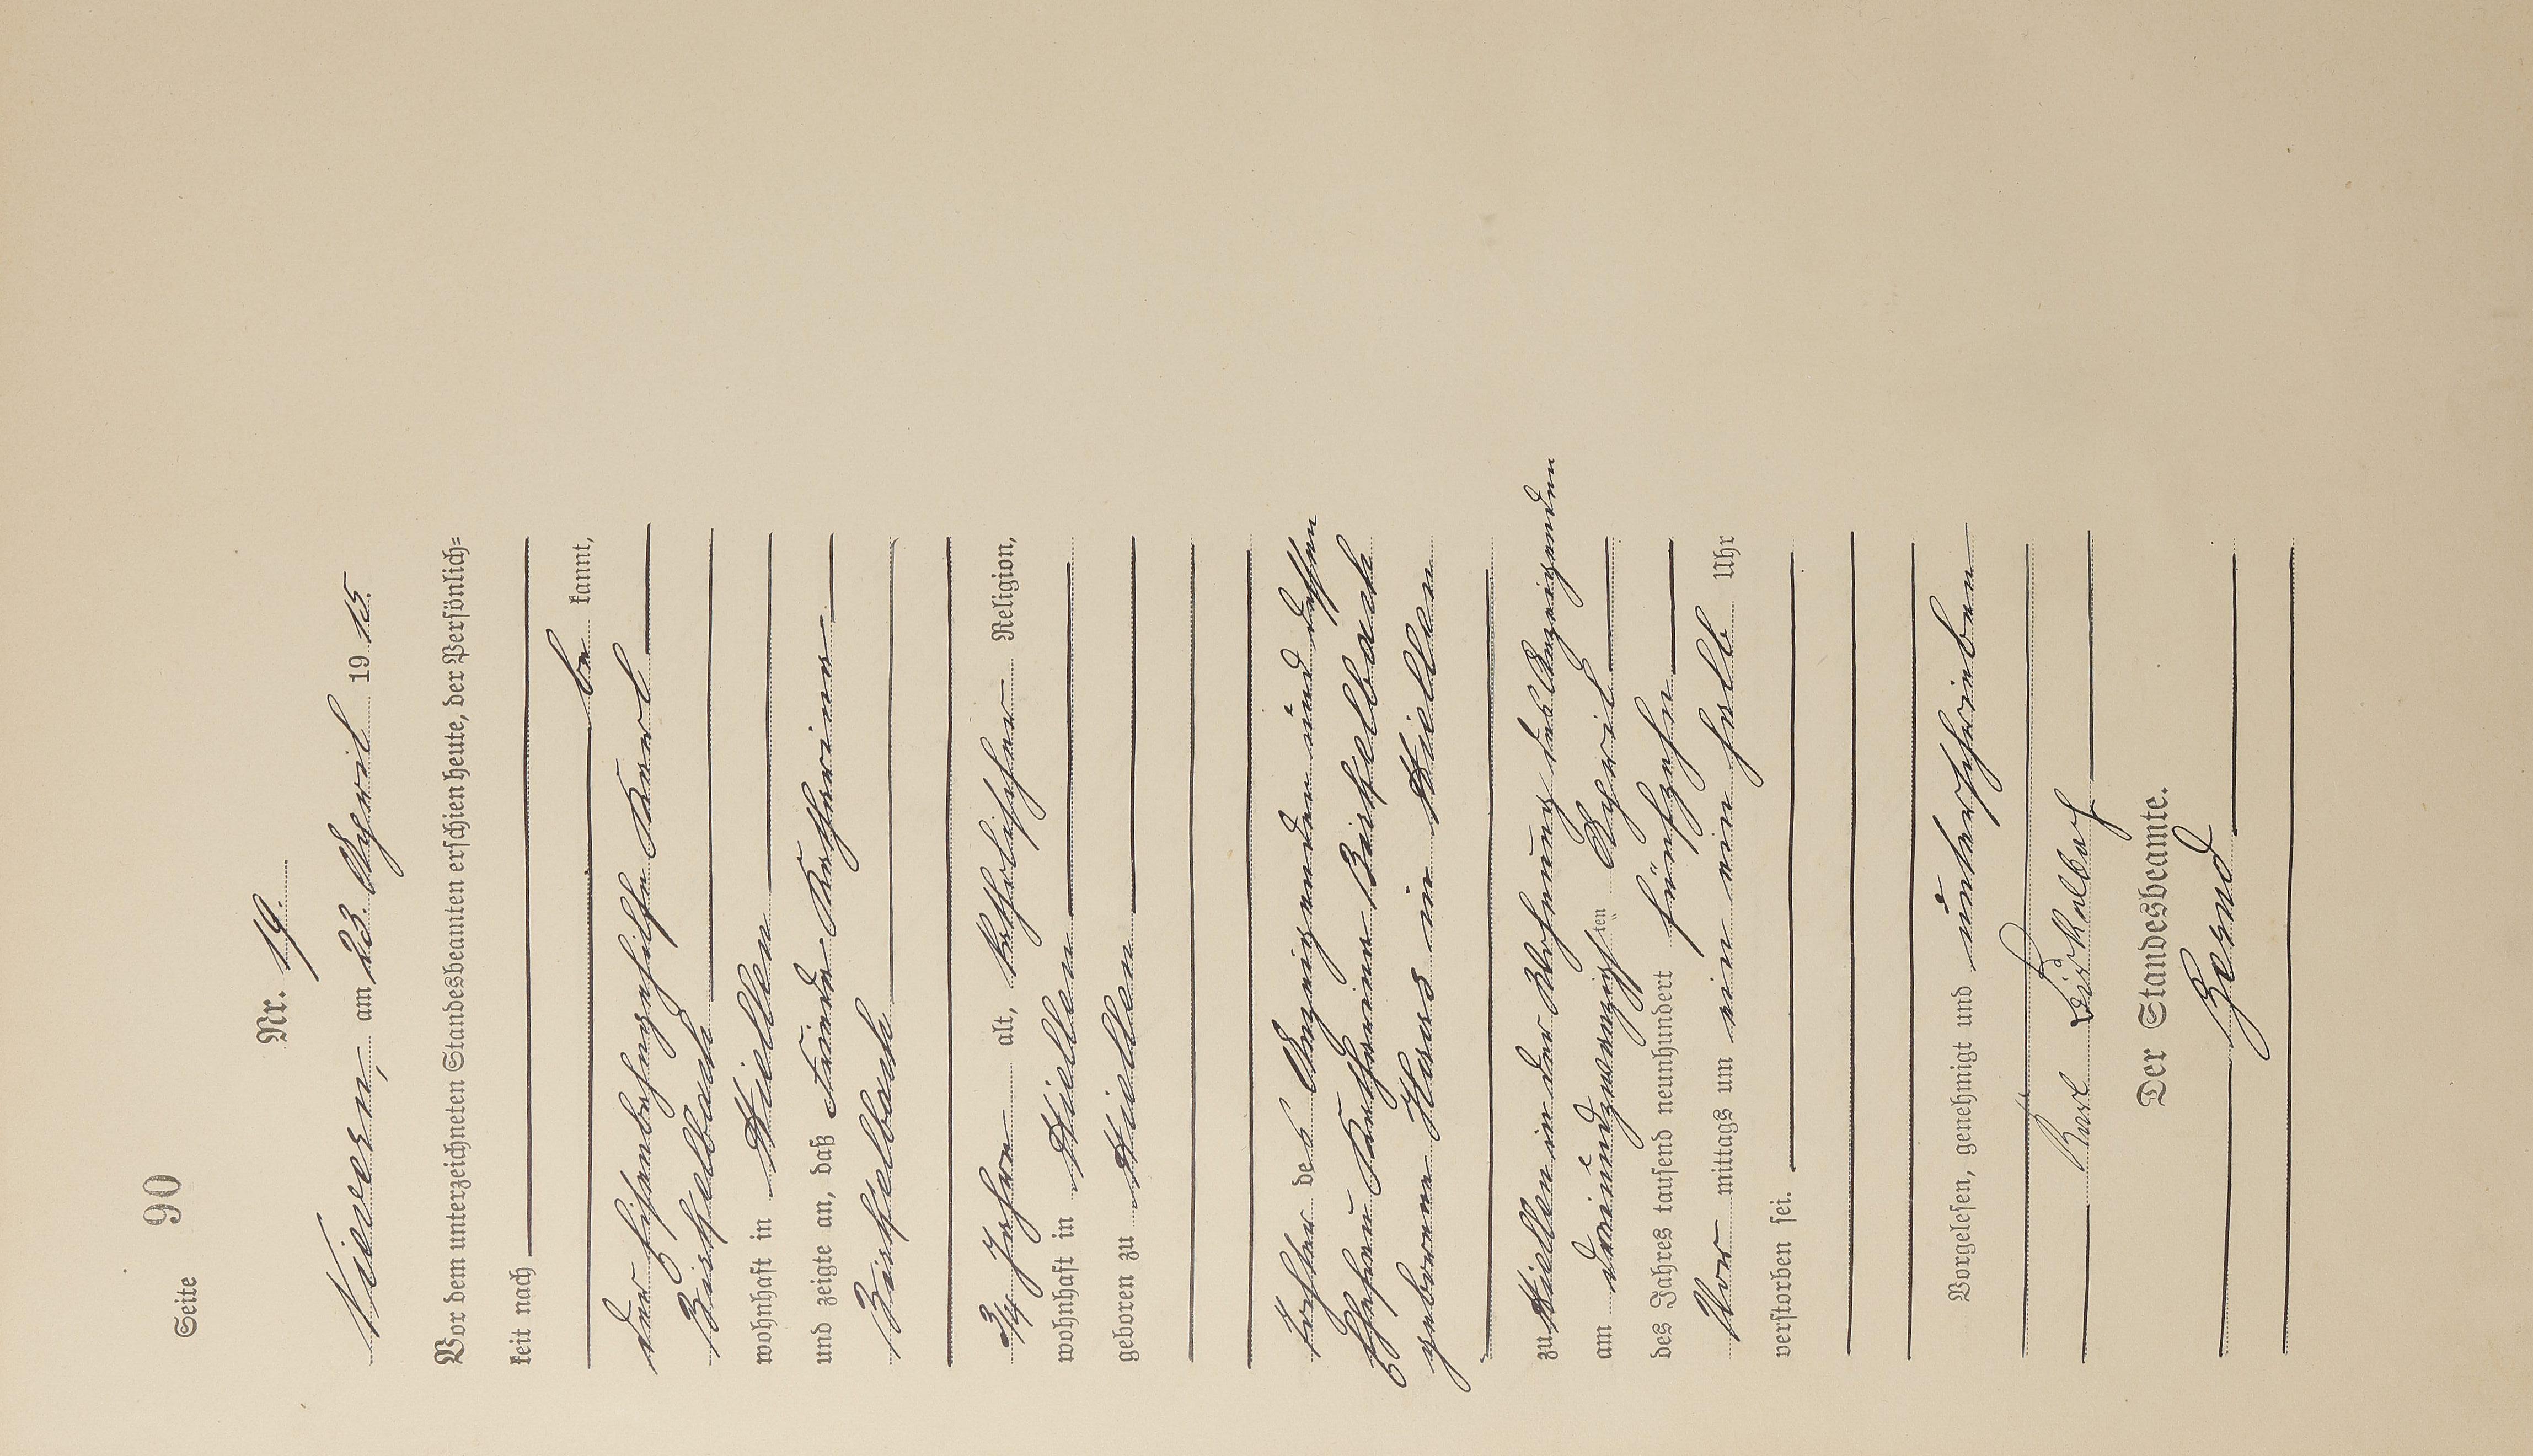 Seite 90
Nr. 19.
Nievern, am 23. April 1915.
Vor dem unterzeichneten Standesbeamten erschien heute, der Persönlich-
keit nach
be kannt,
der Eisenbahngehilfe Karl
Bischelbach
wohnhaft in Miellen
und zeigte an, daß Frieda Katharina
Bischelbach
3/4 Jahre alt, katholischer Religion,
wohnhaft in Miellen
geboren zu Miellen
Tochter des Anzeigenden und dessen
Ehefrau Katharina Bischelbach
geborene Haas in Miellen
zu Miellen in der Wohnung des Anzeigenden
am dreiundzwanzigsten April
des Jahres tausend neunhundert fünfzehn
Vor mittags um ein ein halb Uhr
verstorben sei.
Vorgelesen, genehmigt und unterschrieben
Karl
Der Standesbeamte.